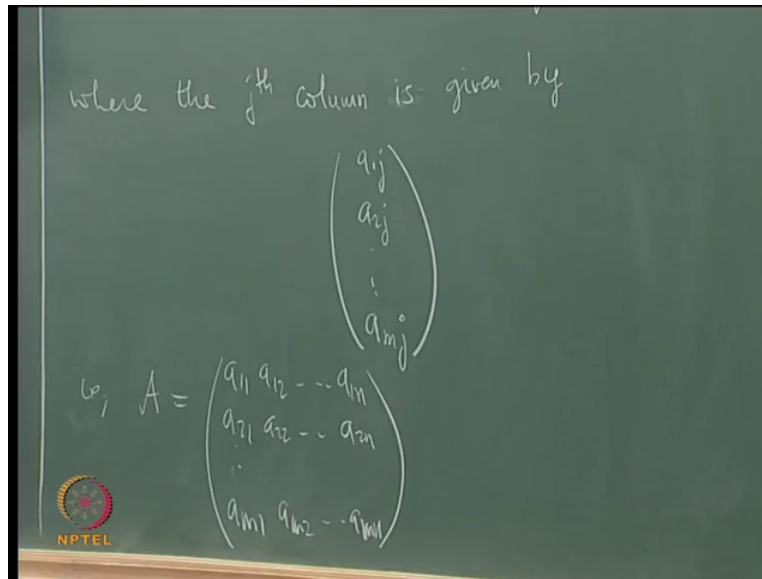 where the jth column is given by
a1j
a2j
.
:
amj
ie, A =
a11 a12 -- .. a1n
a21 a22 -- .. a2n
:
am1 am2 - .. amn
NPTEL